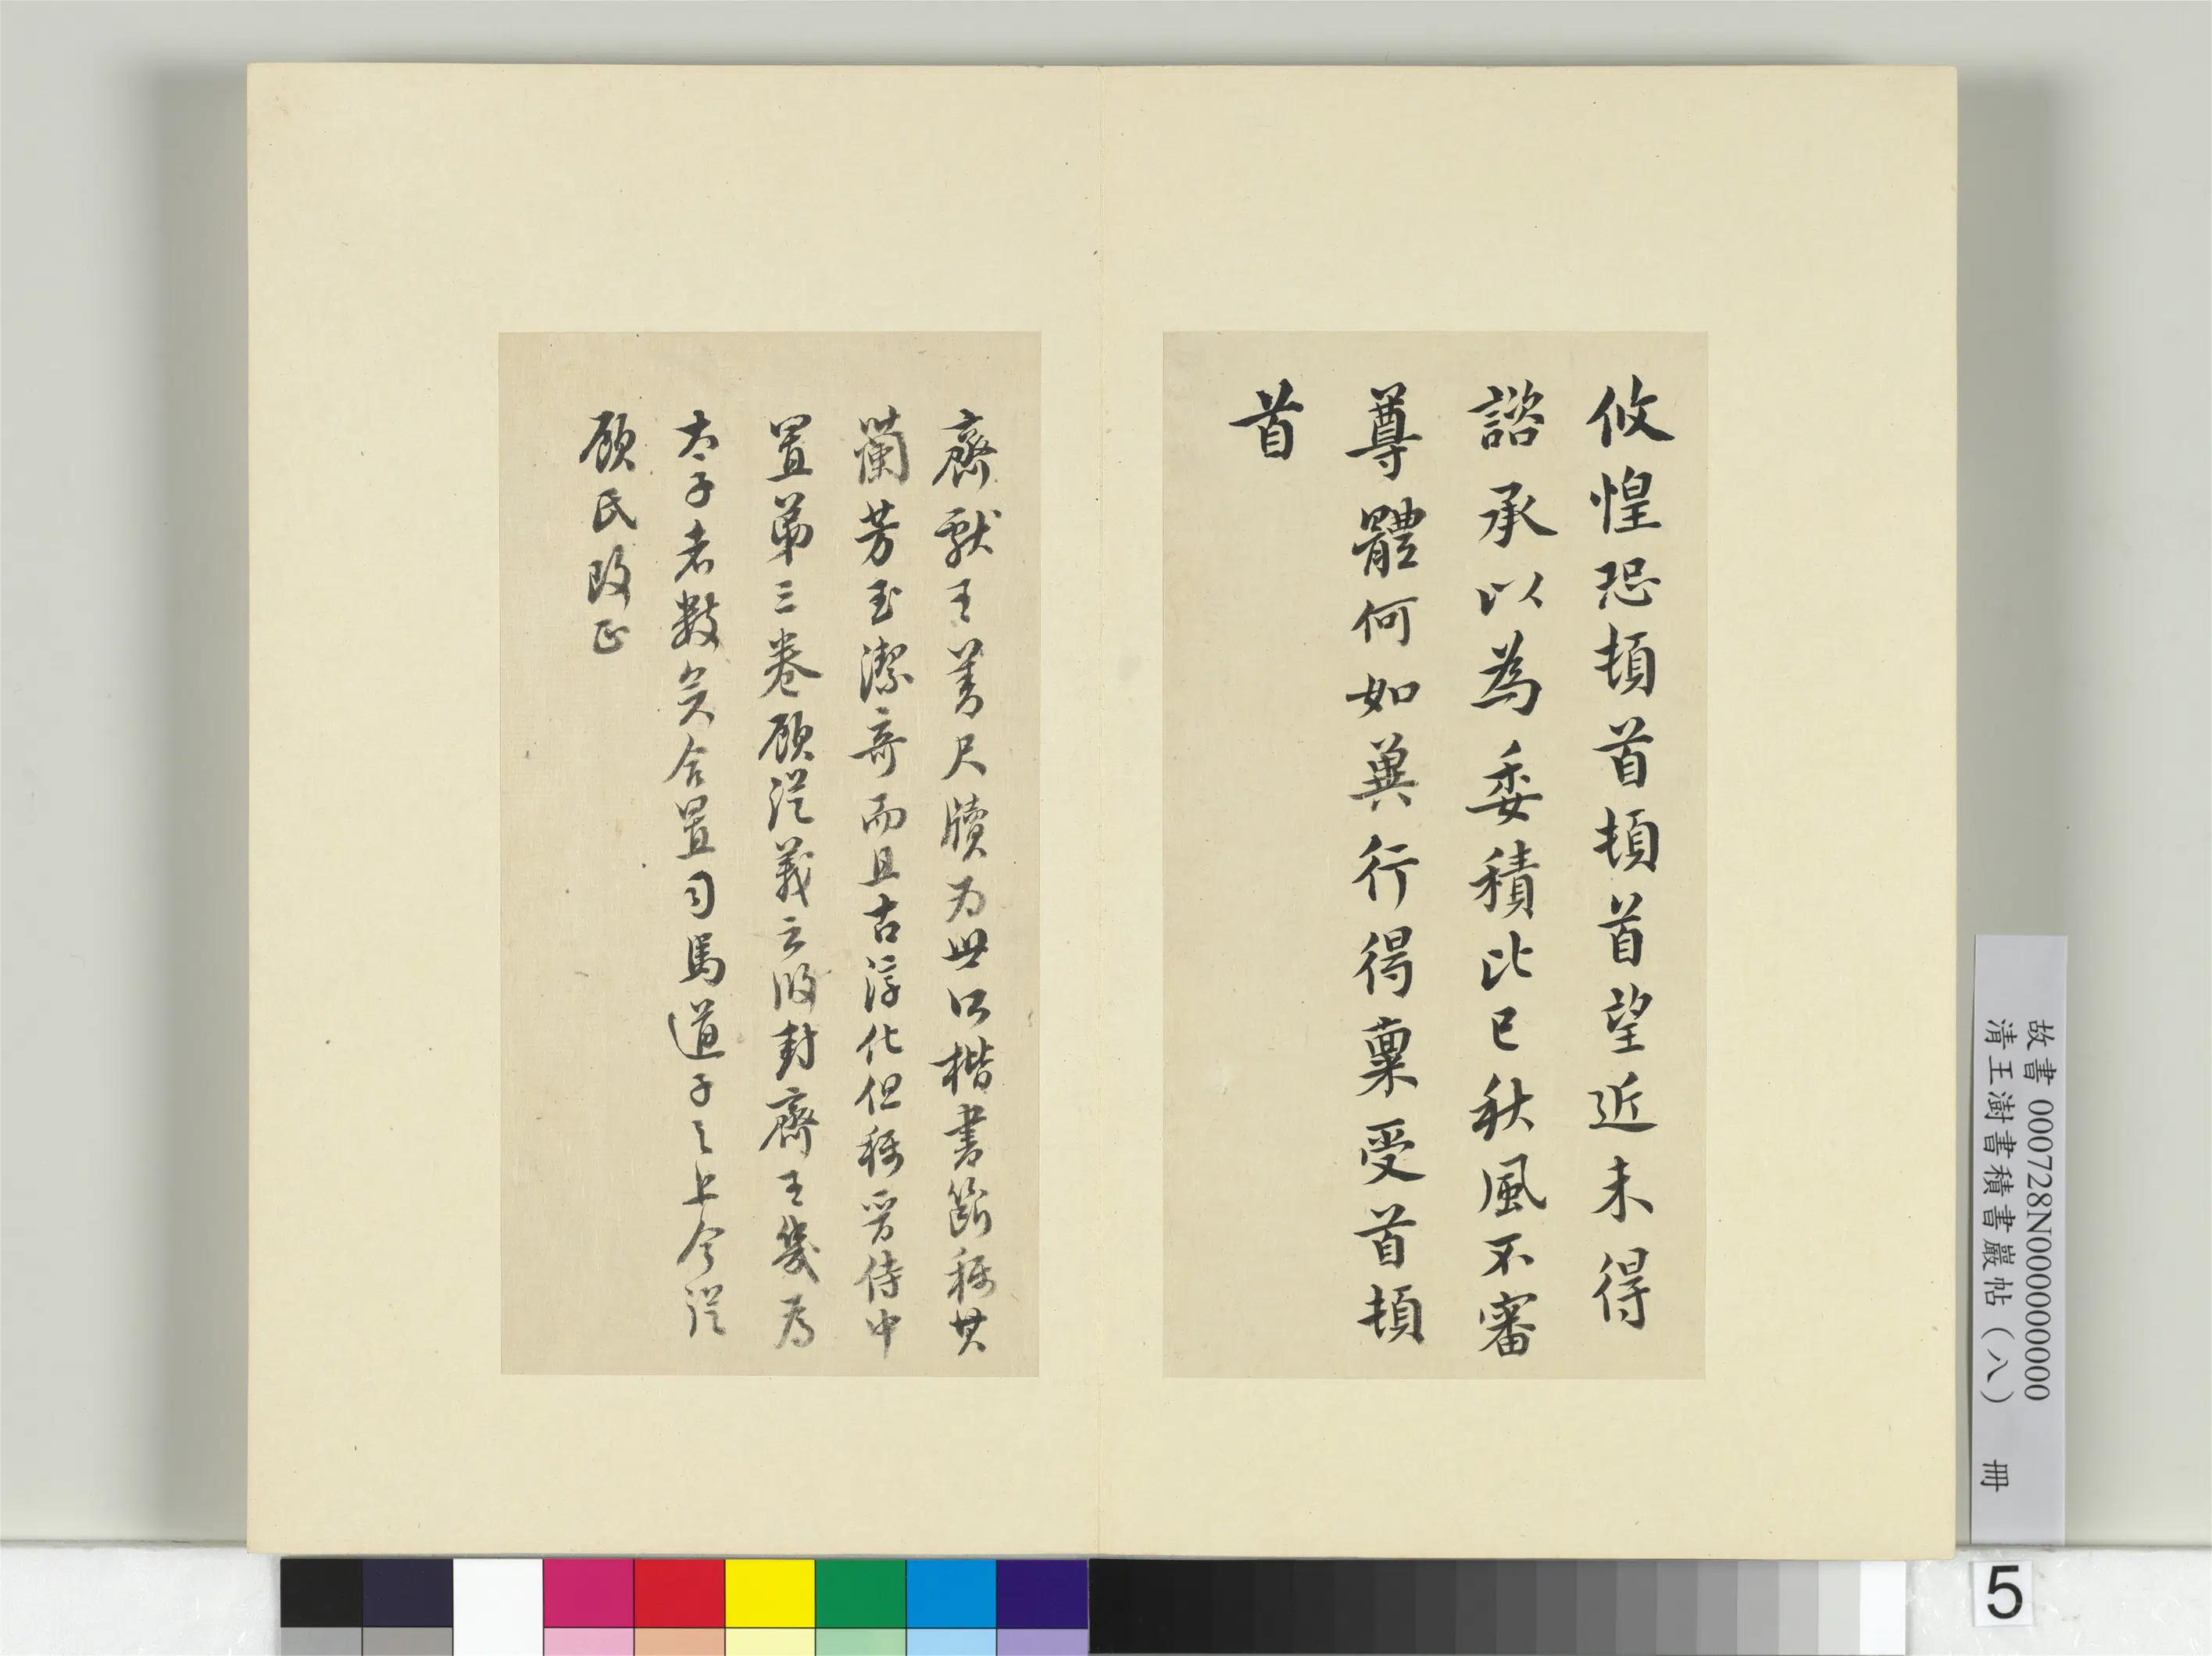 攸惶恐頓首頓首望近未得
諮承以為委積比已秋風不審
尊體何如冀行得稟受首頓
首
齊獻王善尺牘為世所楷書斷稱其
蘭芳玉潔奇而且古淳化但稱晉侍中
置第三卷顧從義云攸封齊王幾為
太子者數矣合置司馬道子之上今從
顧氏改正
故書 000728N000000000
清王澍書積書巖帖(八) 冊
5